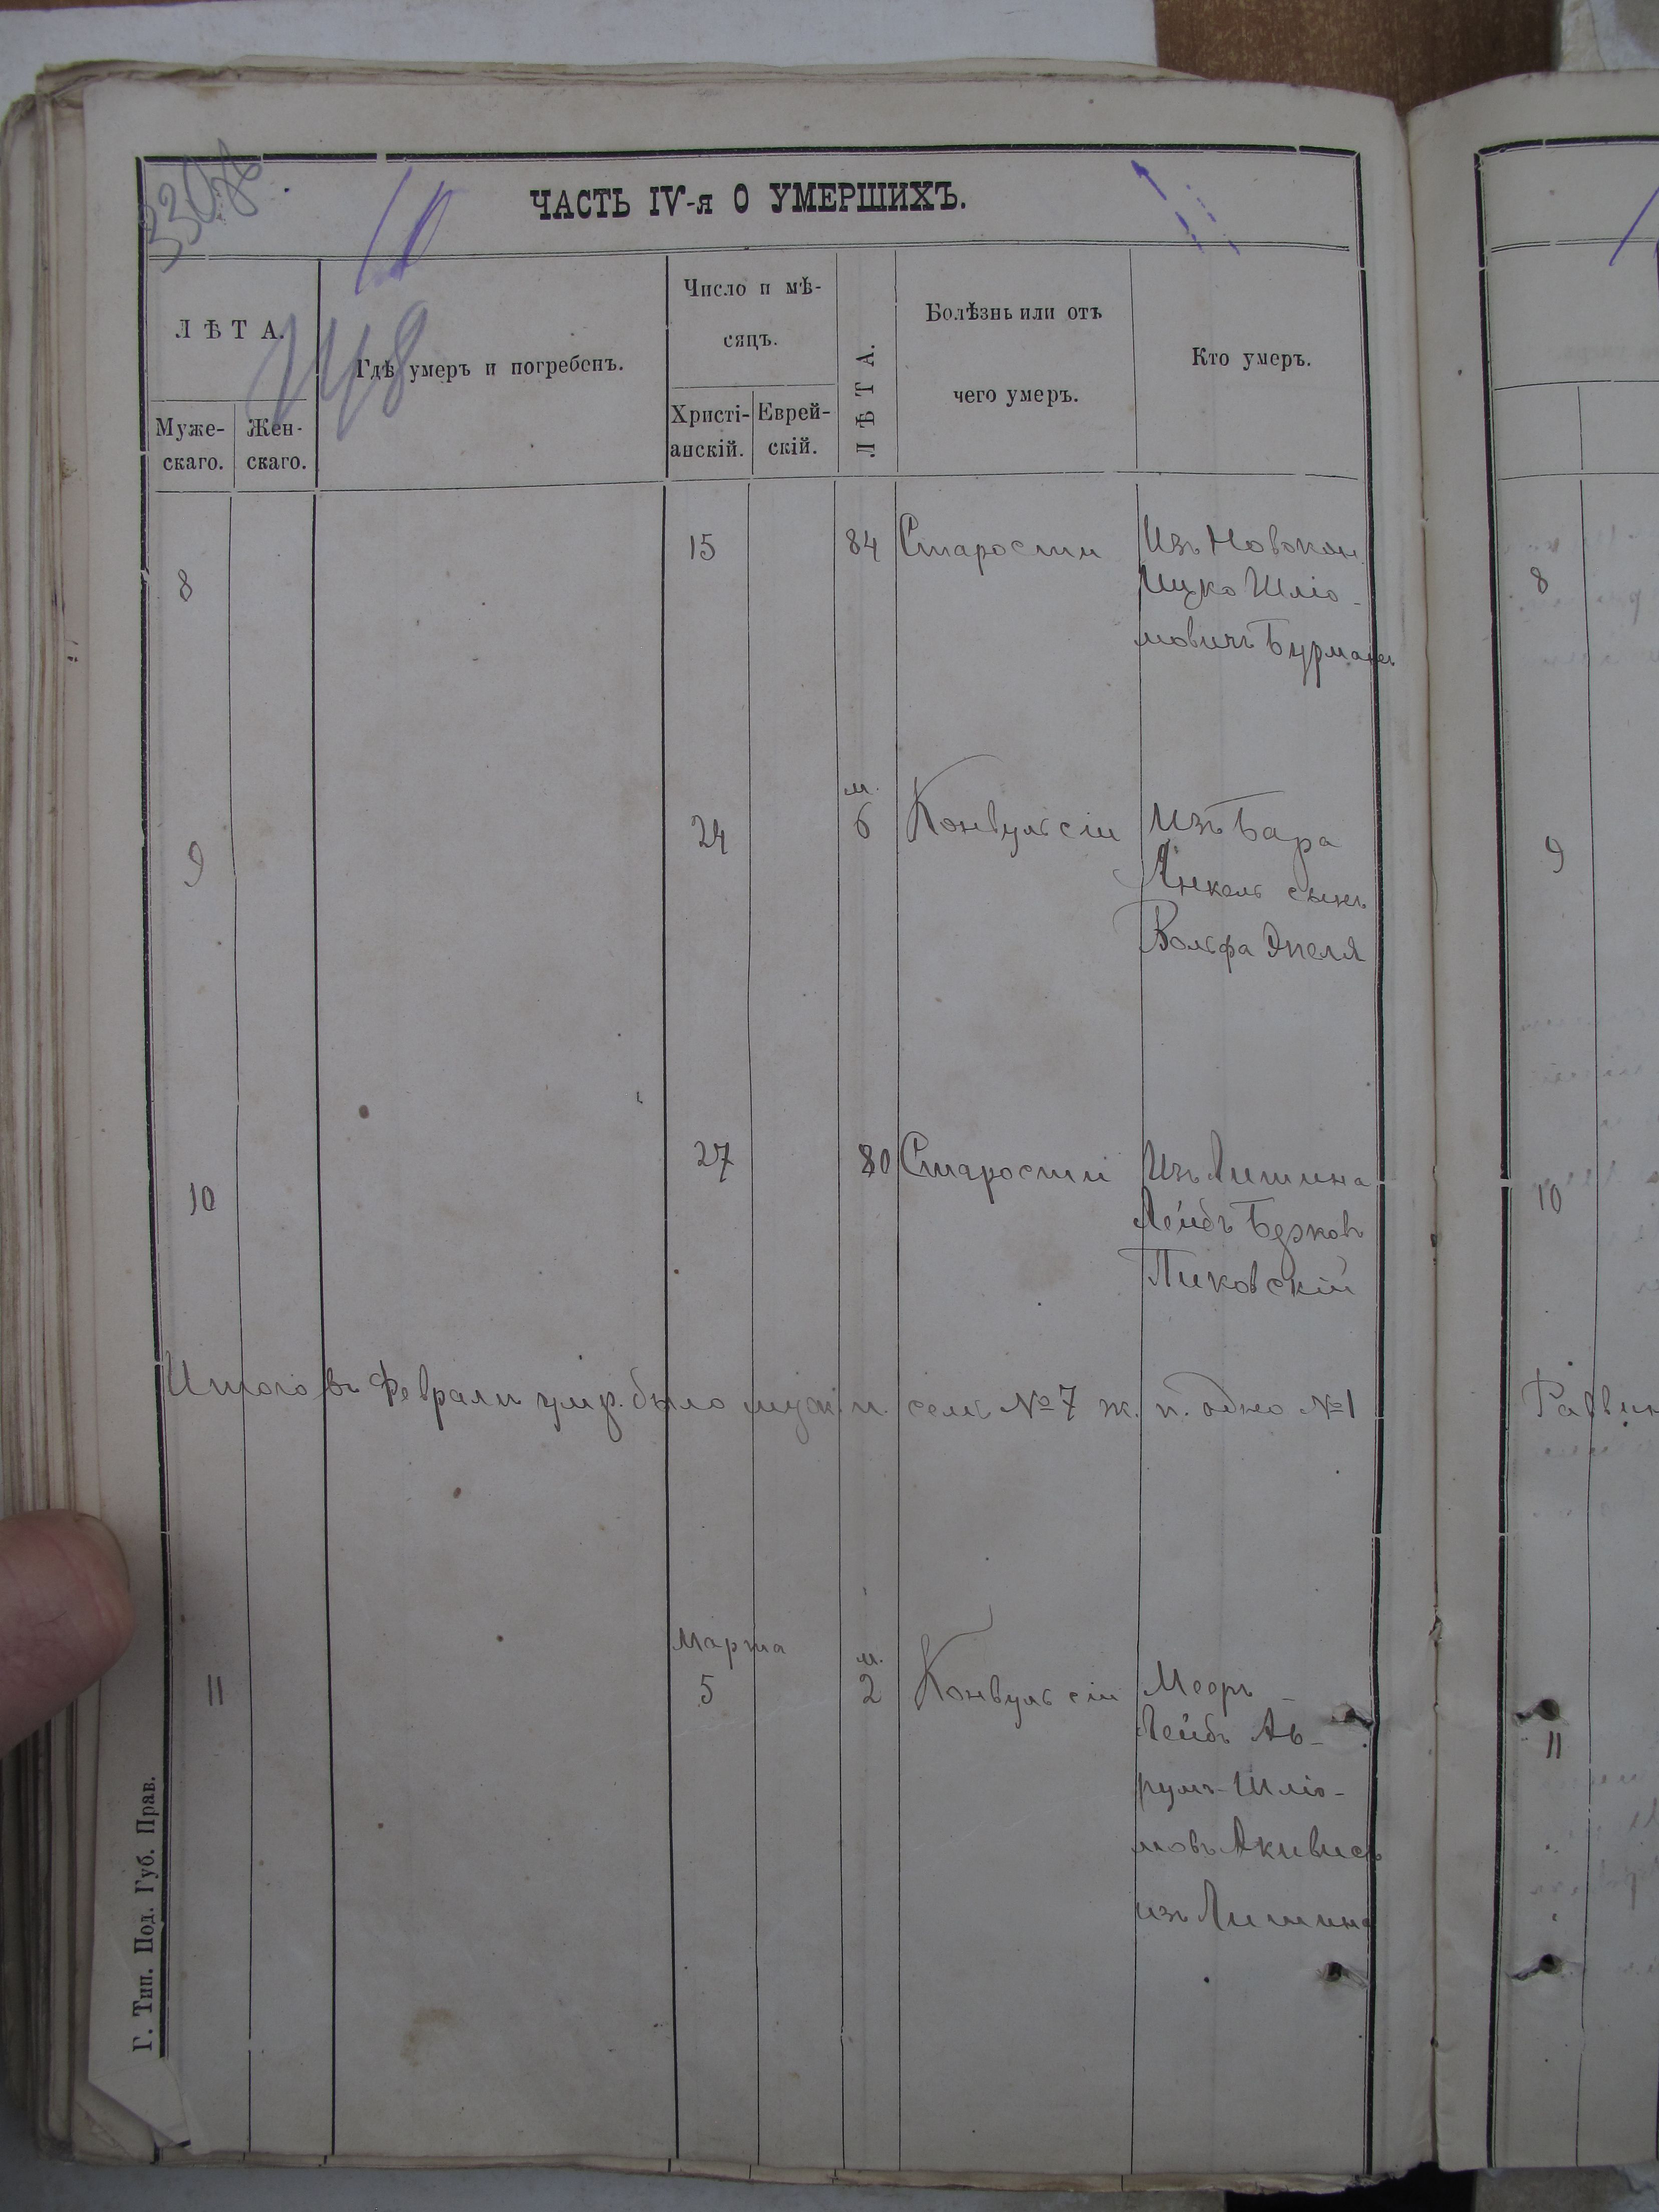 ЧАСТЬ IV-я О УМЕРШИХЪ.
ЛѢТА.
Муже-
скаго.
Жен-
скаго.
Гдѣ умеръ и погребенъ.
Число и мѣ-
сяцъ.
Христі-
анскій.
Еврей-
скій.
ЛѢТА.
Болѣзнь или отъ
чего умеръ.
Кто умеръ.
8
15
84
Старости
Изъ Новокон.
Ицко Шліо-
мовичъ Бурманъ
8
9
24
м.
6
Конвульсіи
Изъ Бара
Янкель сынъ
Вольфа Эпеля
9
10
27
80
Старости
Изъ Литина
Лейбъ Берковъ
Пиковскій
10
Итого въ Феврали умр. было муж. п. семь № 7 ж. п. одно № 1
11
Марта
5
м.
2
Конвульсіи
Меоръ-
Лейбъ Ав-
румъ-Шліо-
мовъ Акивисъ
изъ Литина
11
Г. Тип. Под. Губ. Прав.